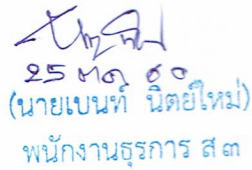 25 ตค 60
(นายเบนท์ นิตย์ใหม่)
พนักงานธุรการ ส ๓